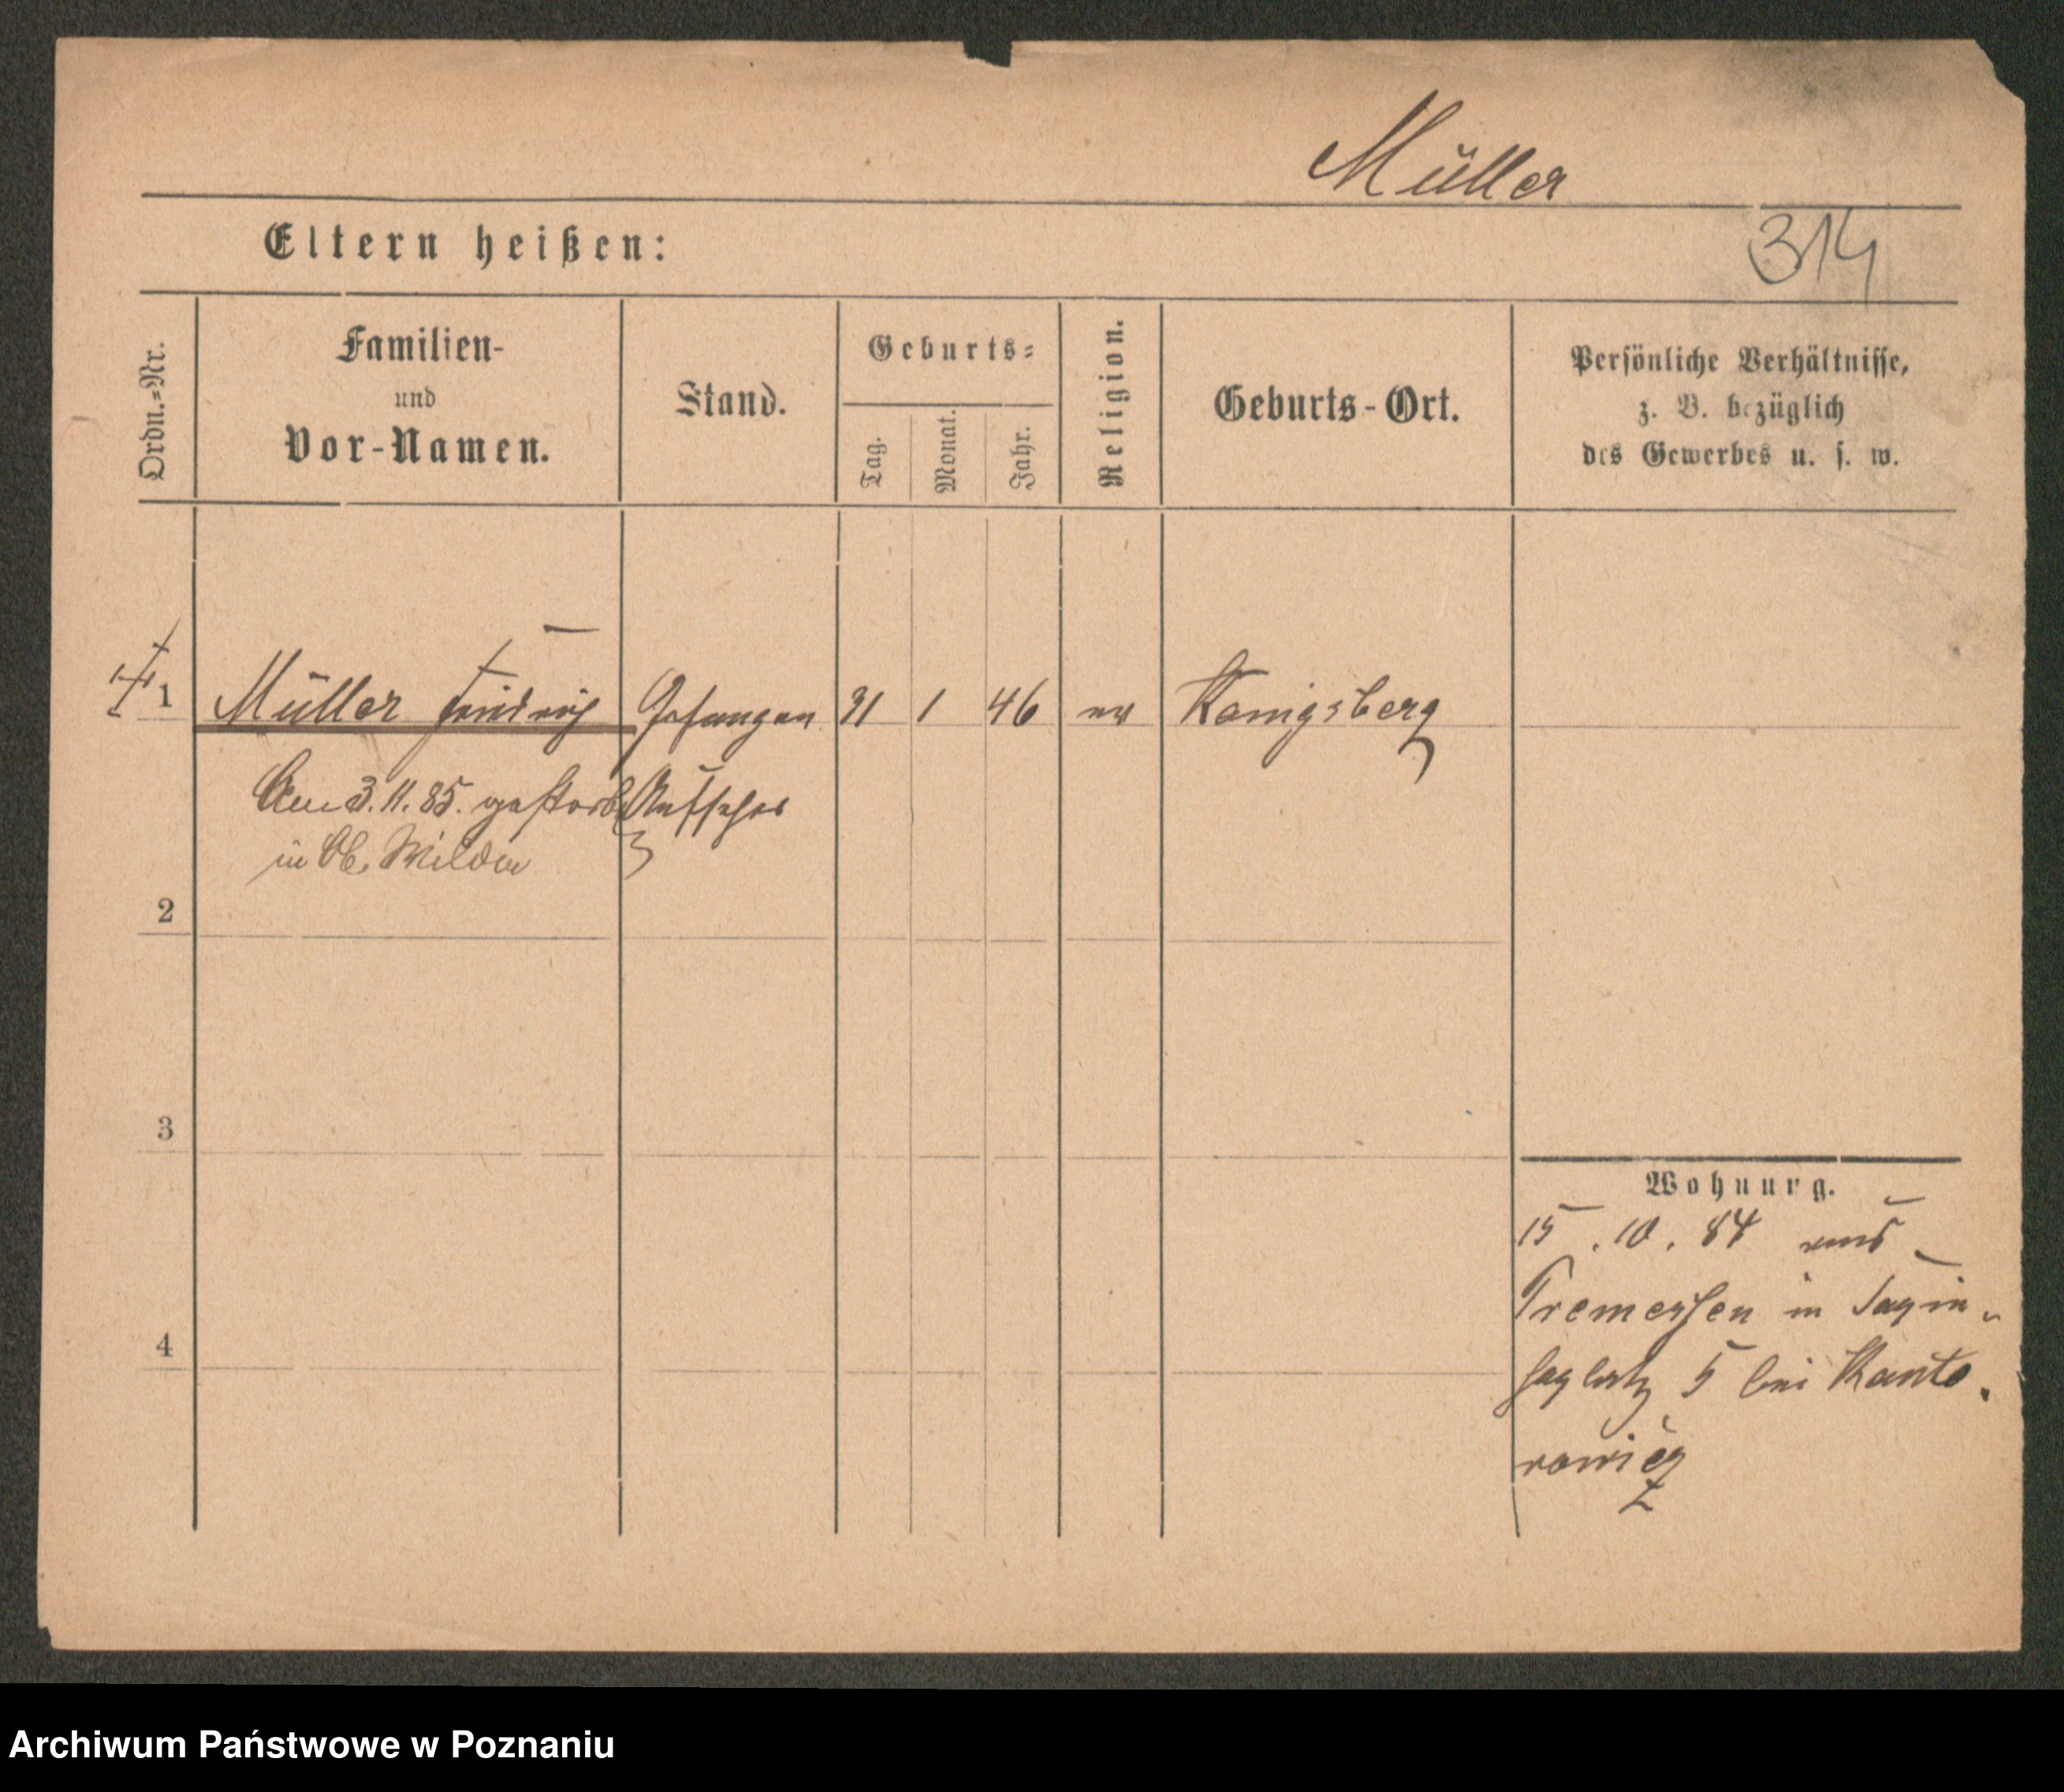 Müller
314
Eltern heißen:
Ordn.-Nr.
Familien-
und
Vor-Namen.
Stand.
Geburts-
Tag.
Monat.
Jahr.
Religion.
Geburts-Ort.
Persönliche Verhältnisse,
z. B. bezüglich
des Gewerbes u. s. w.
1 Müller Friedrich Gefangen 31 1 46 ev Konigsberg
Am 3.11.85. gestorb Aufseher
in Ob. Wilda
2
3
4
Wohnung.
15.10.84 aus
Tremessen in
5 bei Kanto
rowicz
Archiwum Państwowe w Poznaniu